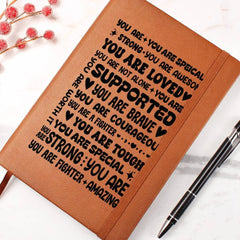 YOU ARE • YOU ARE SPECIAL
STRONG • YOU ARE AWESOM
YOU ARE LOVED
YOU ARE NOT ALONE • YOU ARE
SUPPORTED
YOU ARE BRAVE
YOU ARE COURAGEOU
YOU ARE A FIGHTER
YOU ARE TOUGH
YOU ARE SPECIAL
STRONG • YOU ARE
YOU ARE FIGHTER • AMAZING